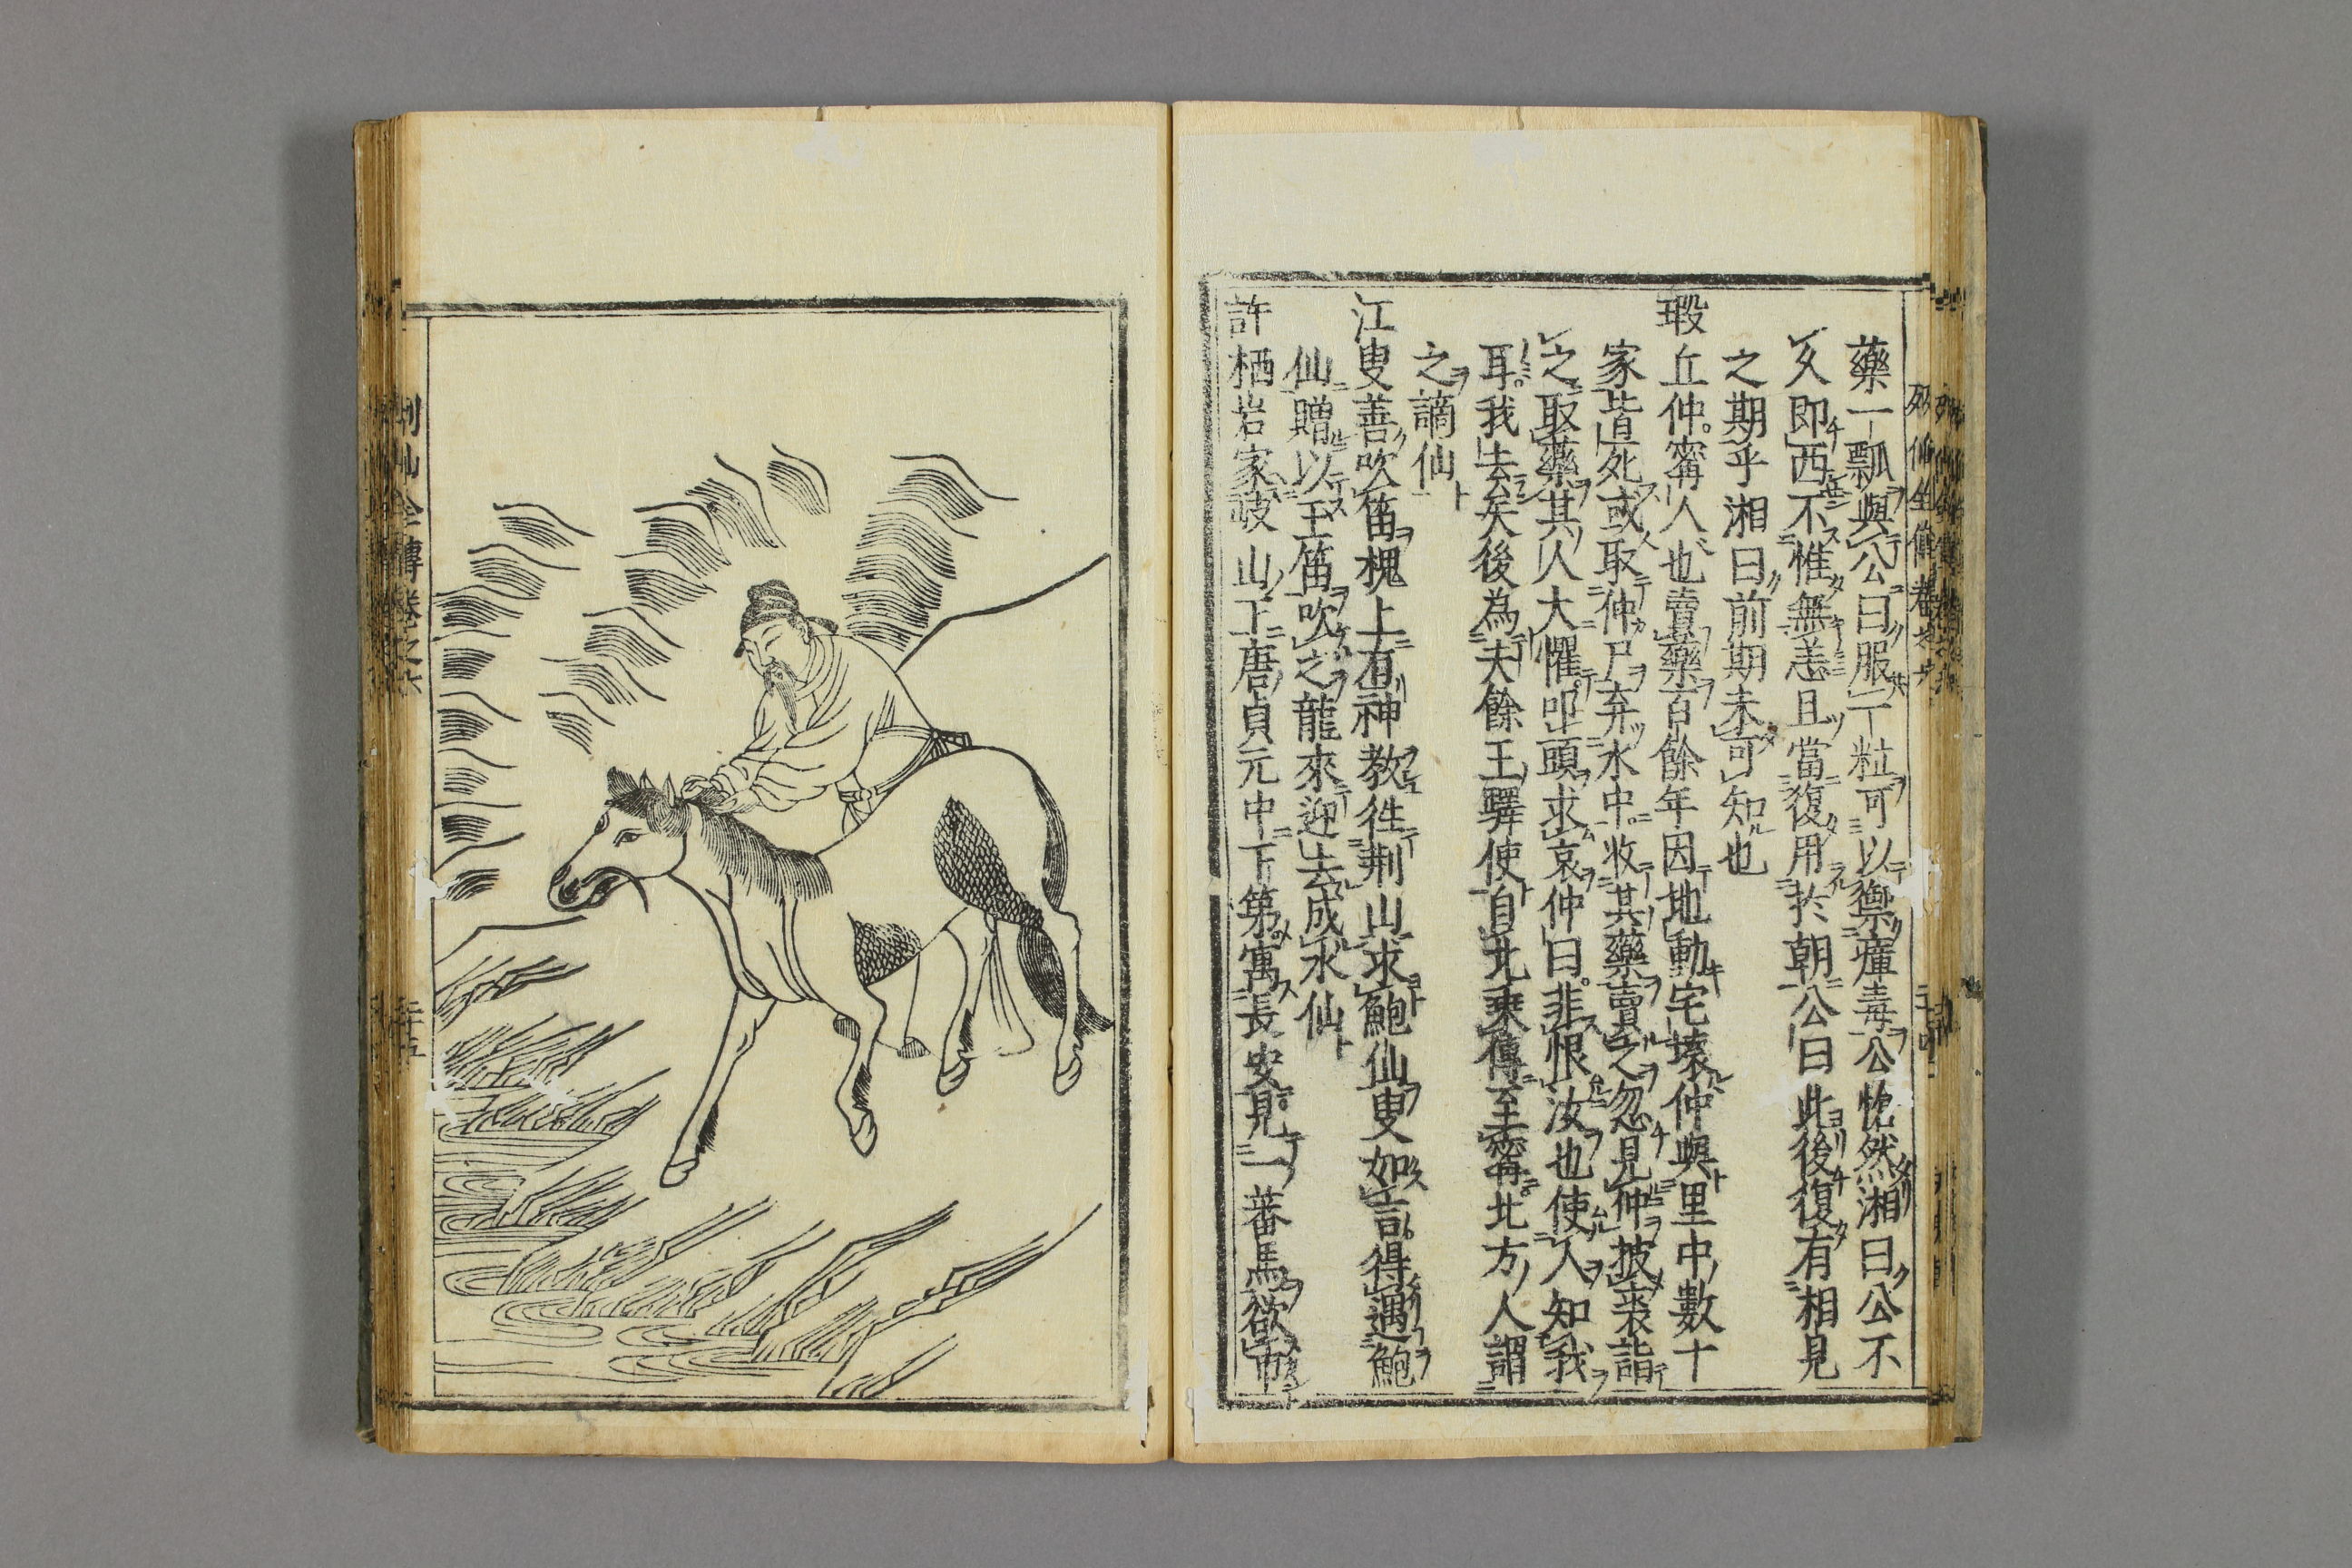 藥一瓢與公曰服一粒可以禦瘴毒公愴然湘曰公不
乆即西不惟無恙且當復用於朝公曰此後復有相見
之期乎湘曰前期未可知也
瑕丘仲寗人也賣藥百餘年因地動宅壊仲與里中數十
家皆死或取仲尸弃水中收其藥賣之忽見仲披裘詣
之取藥其人大懼叩頭求哀仲曰非恨汝也使人知我
耳我去矣後為夫餘王驛使自北乘傳至寗北方人謂
之謫仙
江叟善吹笛槐上有神教徃荆山求鮑仙叟如言得遇鮑
仙贈以玉笛吹之龍來迎去成水仙
許栖岩家岐山下唐貞元中下第寓長安見一蕃馬欲市
列仙全傳卷之六
二十五